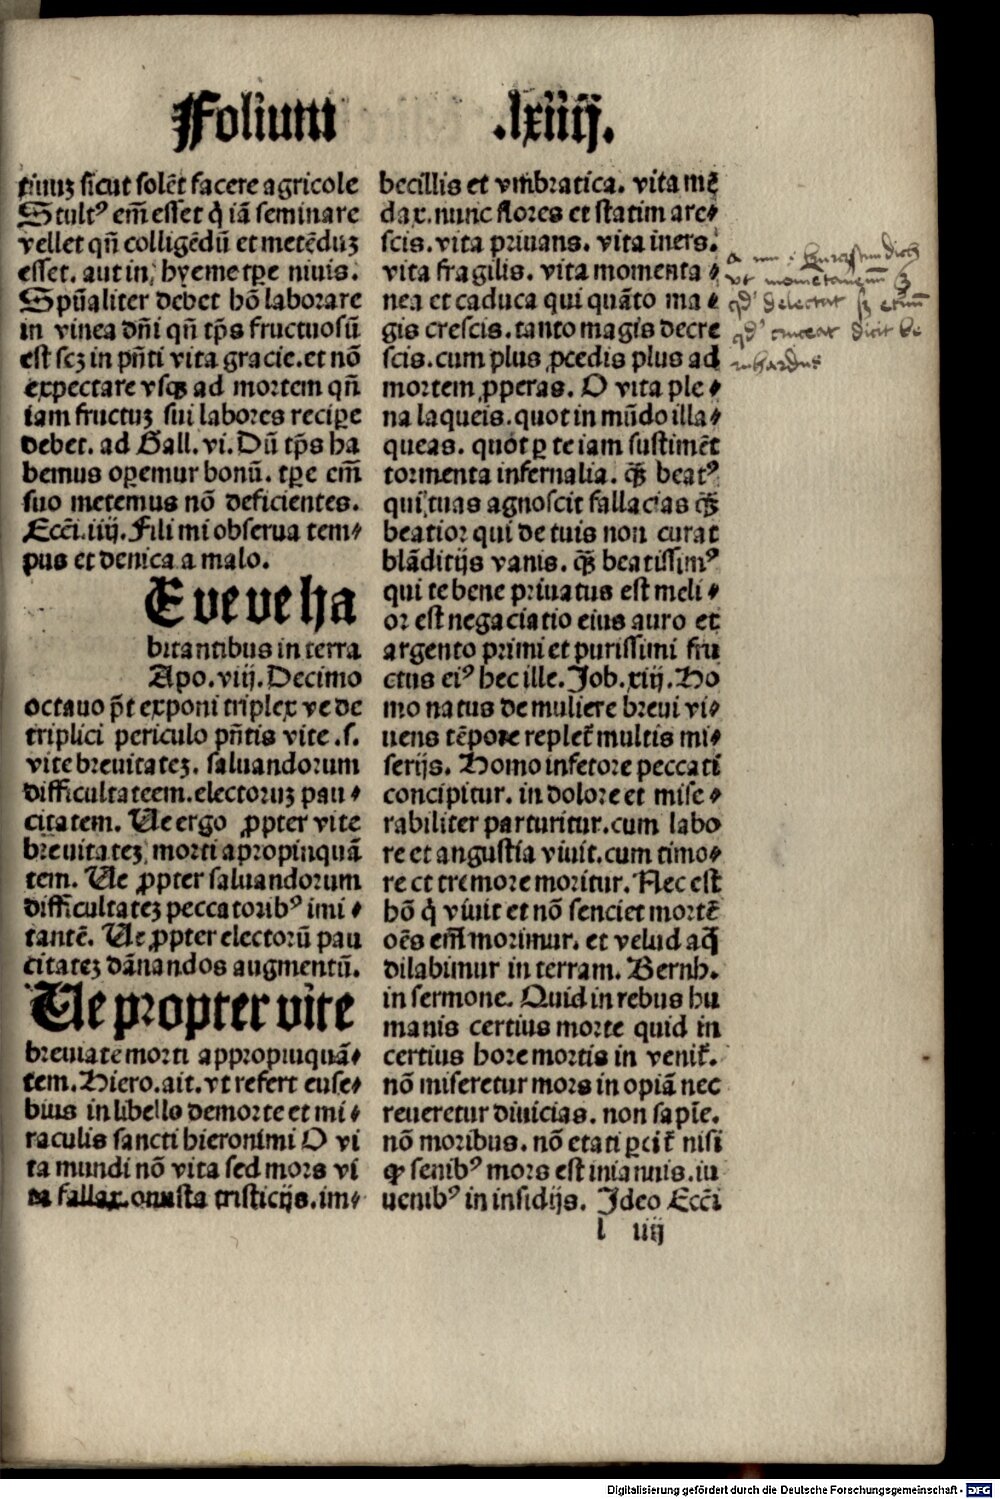 Folium .lxiiij.
tiuuȝ sicut solēt facere agricole
Stultꝰ em̄ esset q̇ iā seminare
vellet qn̄ colligēdū et metēduȝ
esset. aut in hyeme tꝑe niuis.
Spūaliter debet hō laborare
in vinea dn̄i qn̄ tp̄s fructuosū
est scȝ in pn̄ti vita gracie. et nō
expectare vsqȝ ad mortem qn̄
iam fructuȝ sui labores recipe
debet. ad Gall. vi. Dū tp̄s ha
bemus operemur bonū. tꝑe em̄
suo metemus nō deficientes.
Ecc̄i. iiij. Fili mi obserua tem⸗
pus et deuica a malo.
E ve ve ha
bitantibus in terra
Apo. viij. Decimo
octauo pt̄ exponi triplex ve de
triplici periculo pn̄tis vite .s.
vite breuitateȝ. saluandorum
difficultateem. electoruȝ pau⸗
citatem. Ue ergo ꝓpter vite
breuitateȝ morti apropinquā
tem. Ue ꝓpter saluandorum
difficultateȝ peccatoribꝰ imi⸗
tantē. Ue ꝓpter electorū pau
citateȝ dānandos augmentū.
Ue propter vite
breuiatē morti appropiuquā⸗
tem. Hiero. ait. vt refert euse⸗
bius in libello de morte et mi⸗
raculis sancti hieronimi O vi
ta mundi nō vita sed mors vi
ta fallax. onusta tristicijs. im⸗
becillis et vmbratica. vita mē
dax. nunc flores et statim are⸗
scis. vita priuans. vita iners.
vita fragilis. vita momenta⸗
nea et caduca qui quāto ma⸗
gis crescis. tanto magis decre
scis. cum plus ꝓcedis plus ad
mortem ꝓperas. O vita ple⸗
na laqueis. quot in mūdo illa⸗
queas. quot ꝑ te iam sustinēt
tormenta infernalia. qȝ̄ beatꝰ
qui tuas agnoscit fallacias qȝ̄
beatior qui de tuis non curat
blāditijs vanis. qȝ̄ beatissimꝰ
qui te bene priuatus est meli⸗
or est negaciatio eius auro et
argento primi et purissimi fru
ctus eiꝰ hec ille. Job. xiij. Ho
mo natus de muliere breui vi⸗
uens tēpore replet̄ multis mi⸗
serijs. Homo in fetore peccati
concipitur. in dolore et mise⸗
rabiliter parturitur. cum labo
re et angustia viuit. cum timo⸗
re et tremore moritur. Nec est
hō q̇ viuit et nō senciet mortē
oēs em̄ morimur. et velud aq̄
dilabimur in terram. Bernh.
in sermone. Quid in rebus hu
manis certius morte quid in
certius hore mortis in venit̄.
nō miseretur mors inopiā nec
reueretur diuicias. non sapīe.
nō moribus. nō etati ꝑcit̄ nisi
ꝙ senibꝰ mors est in ianuis. iu
uenibꝰ in insidijs. Ideo Ecc̄i
l iiij
vt mometaneum
qd' delectat
qd' cruciat dicit be
rnhardus
Digitalisierung gefördert durch die Deutsche Forschungsgemeinschaft - DFG